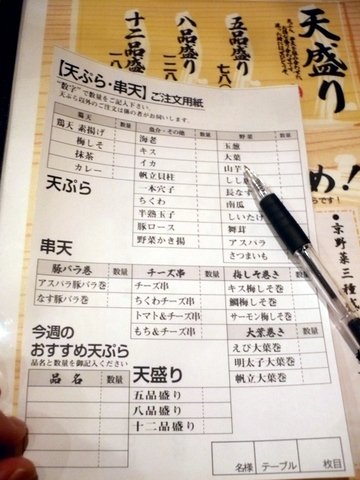 天盛り
五品盛り
八品盛り
十二品盛り
【天ぷら・串天】ご注文用紙
"数字"で数量をご記入下さい。
天ぷら以外のご注文は係の者がお伺いします。
鶏天 数量
鶏天 素揚げ
梅しそ
抹茶
カレー
魚介・その他 数量
海老
キス
イカ
帆立貝柱
一本穴子
ちくわ
半熟玉子
豚ロース
野菜かき揚
野菜 数量
玉葱
大葉
山芋
しし
長なす
南瓜
しいたけ
舞茸
アスパラ
さつまいも
天ぷら
串天
豚バラ巻 数量
アスパラ豚バラ巻
なす豚バラ巻
チーズ串 数量
チーズ串
ちくわチーズ串
トマト&チーズ串
もち&チーズ串
梅しそ巻 数量
キス梅しそ巻
鯛梅しそ巻
サーモン梅しそ巻
大葉巻き
えび大葉巻
明太子大葉巻
帆立大葉巻
今週の
おすすめ天ぷら
品名と数量を御記入ください
品名 数量
天盛り
五品盛り
八品盛り
十二品盛り
名様 テーブル 枚目
め!
京野菜三種